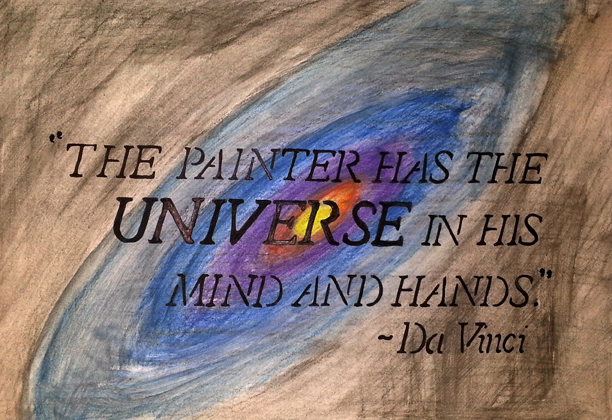 "THE PAINTER HAS THE
UNIVERSE IN HIS
MIND AND HANDS."
~Da Vinci